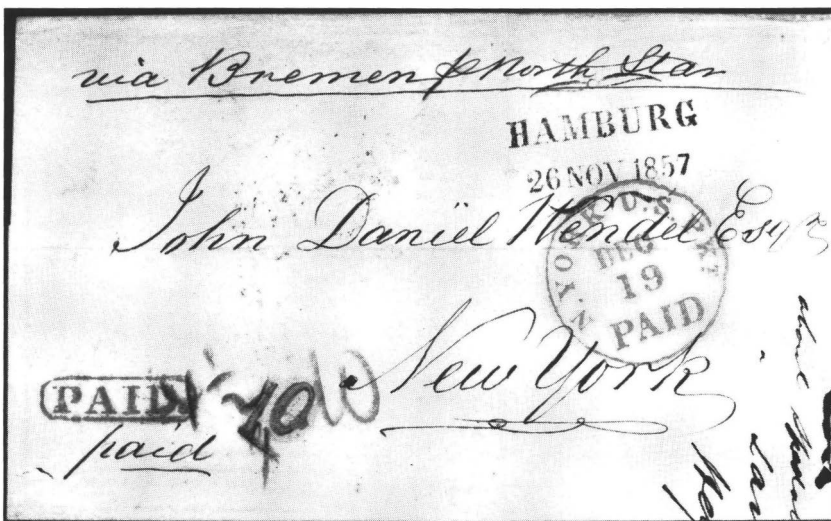 via Bremen p North Star
HAMBURG
26 NOV 1857
John Daniël Wendel Esqr
N.YORK U.S. PKT
DEC
19
PAID
New York
PAID
10
paid